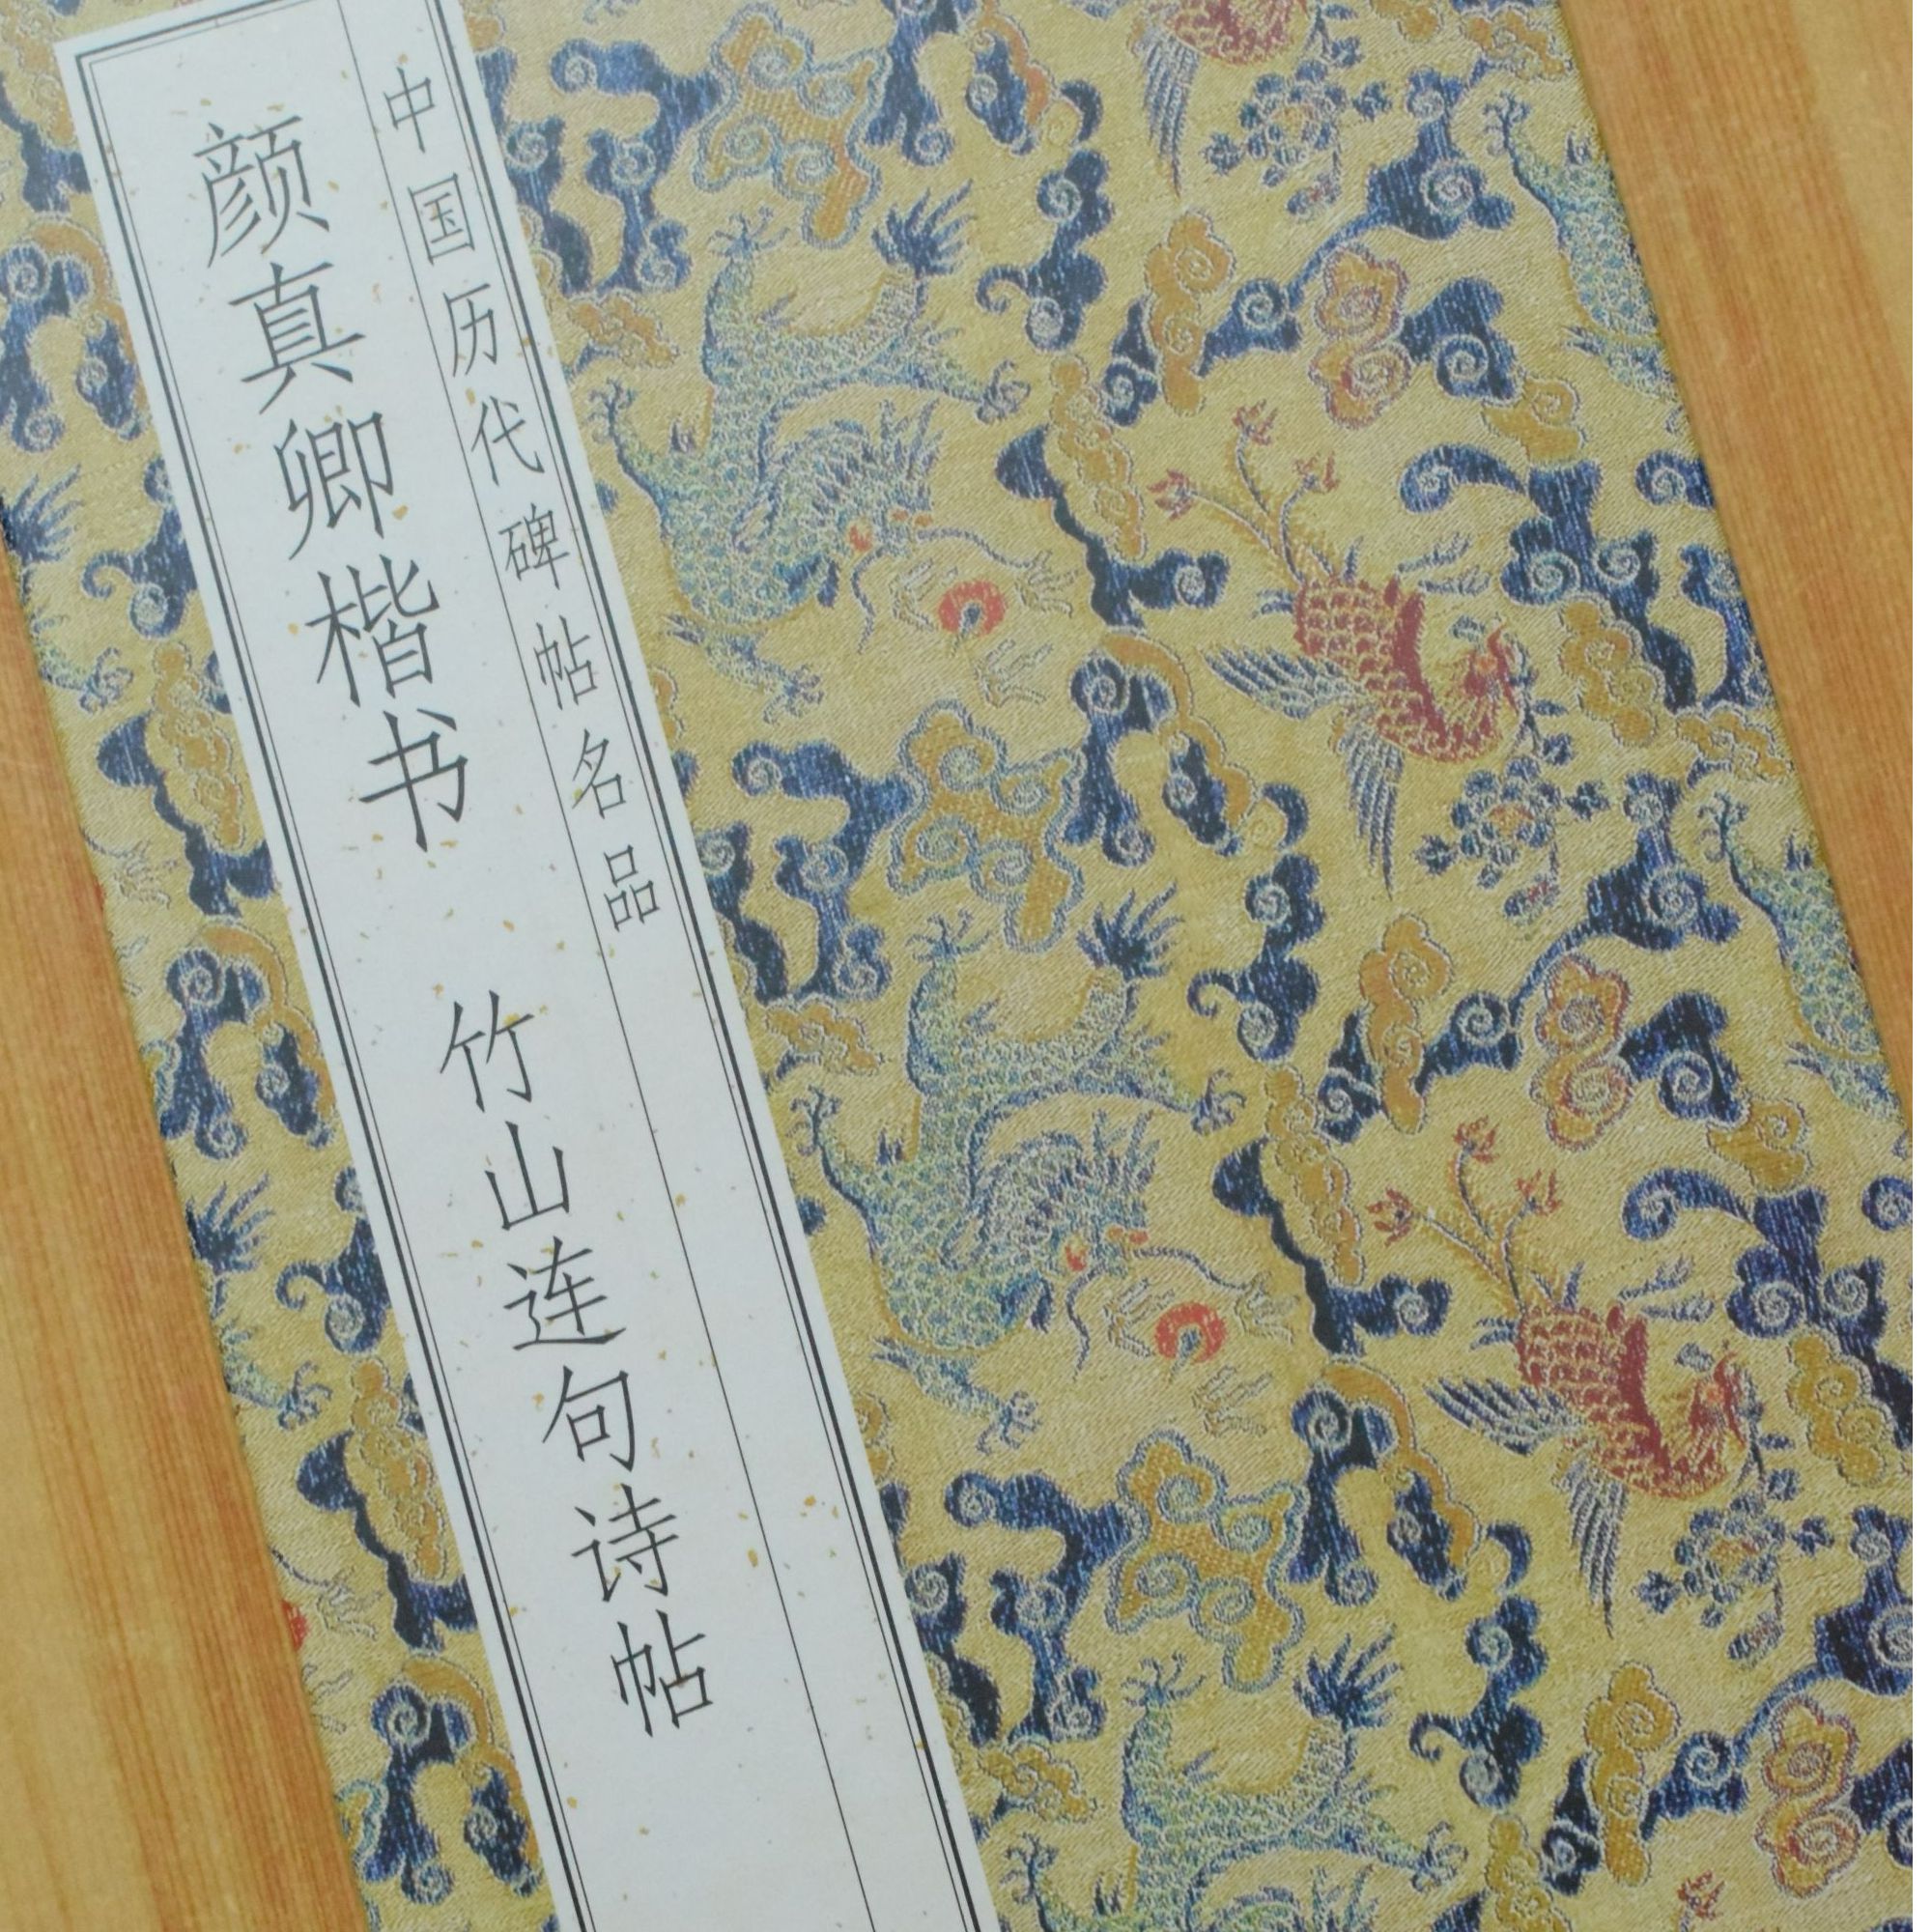 中国历代碑帖名品
颜真卿楷书 竹山连句诗帖